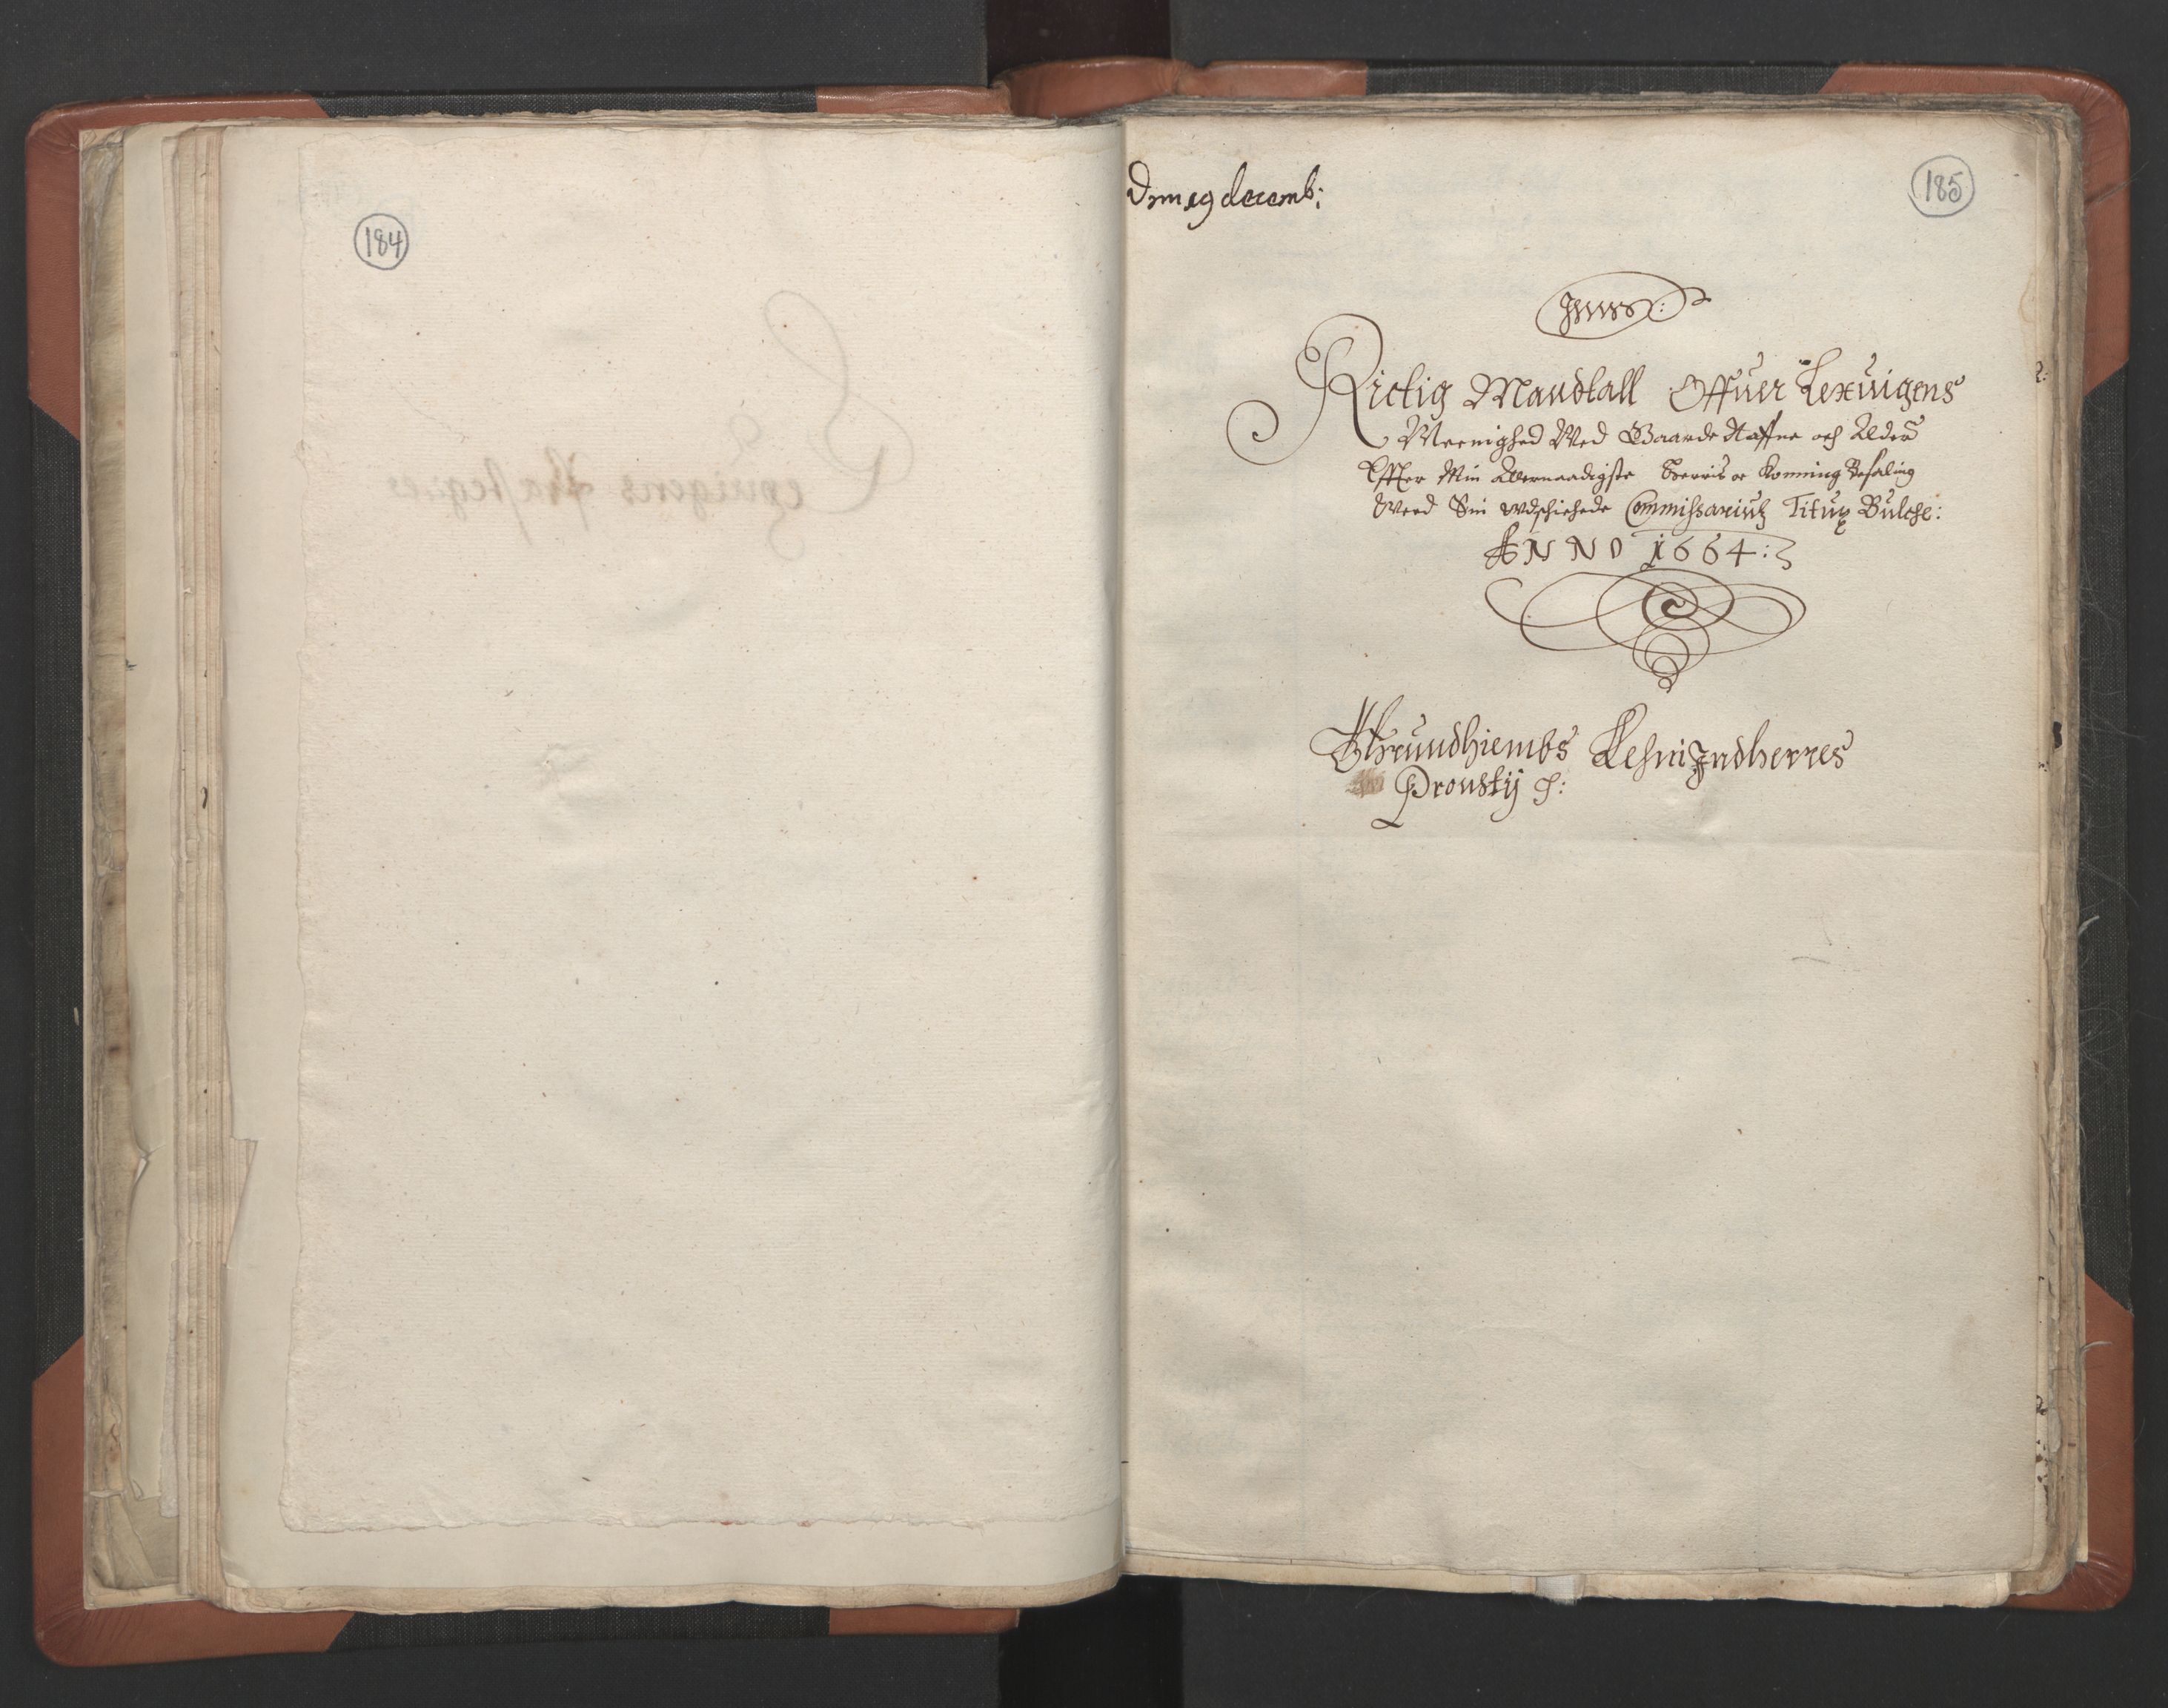 184
Den 19 decemb:
185
Rictig Mandtall Offuer Lexuigens
Meenighed Med Gaarde Naffne och Alder
Effter Min Allernaadigste Herris oc Konning Befaling
Med Sin vdschichede Commissariutz Titus Bulche:
ANNO 1664:
Thrundhiembs Lehn Indherres
Proustij